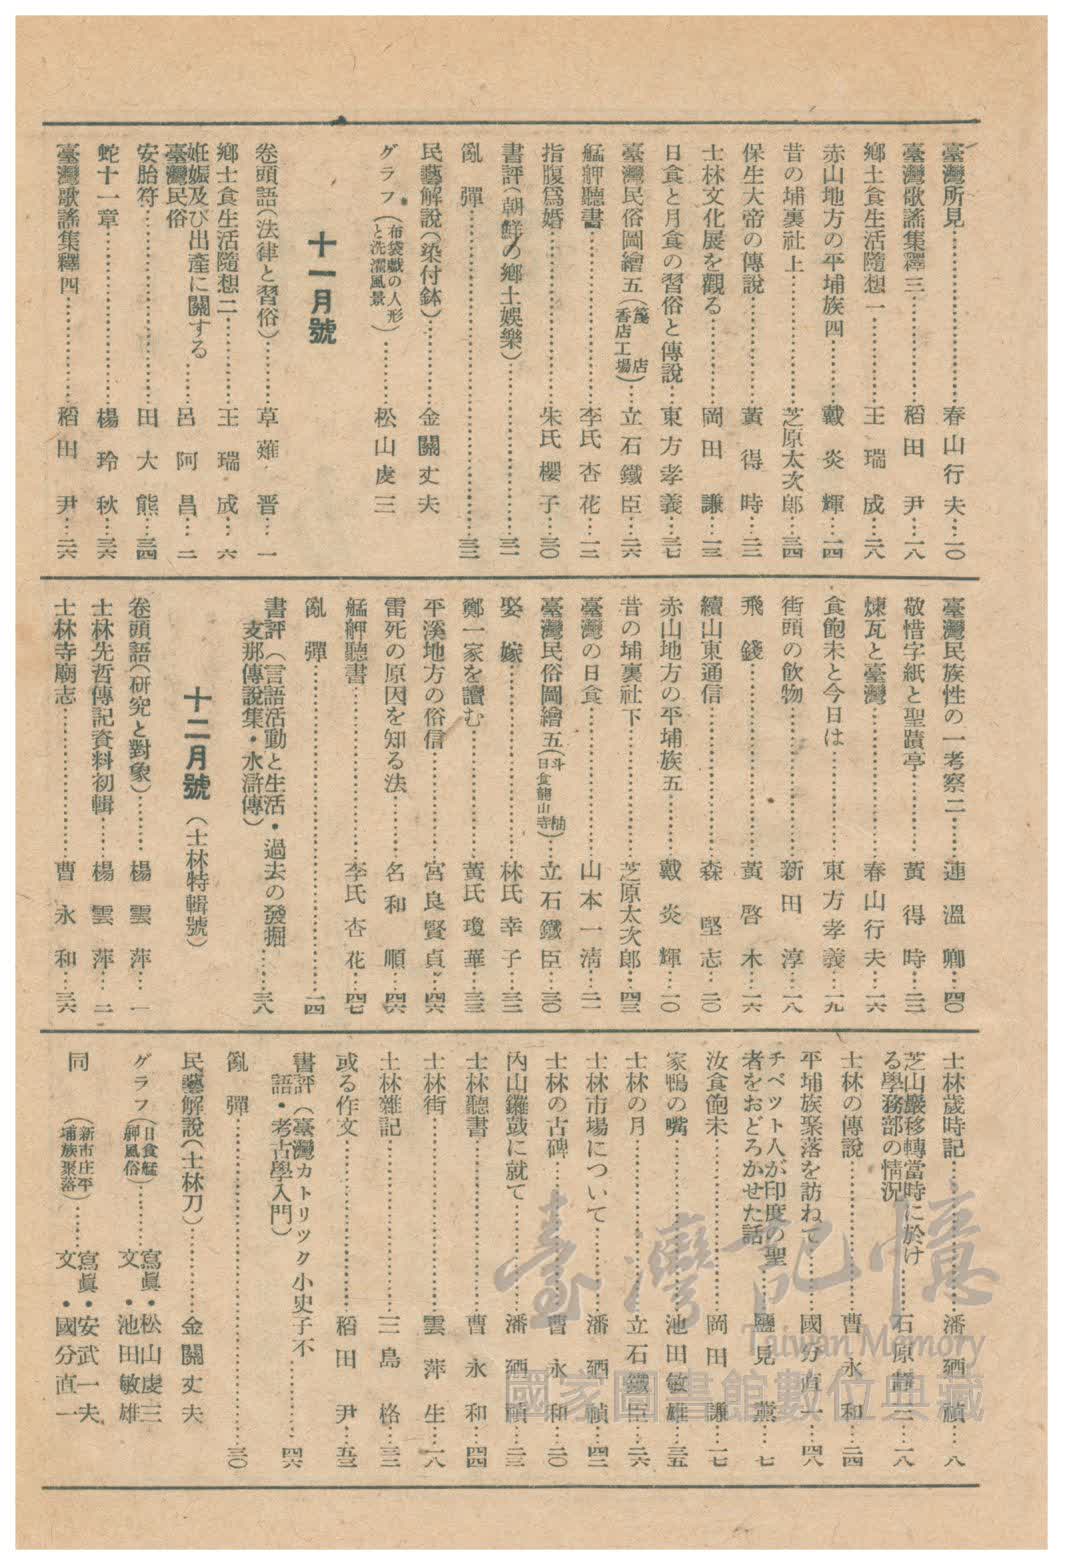 臺灣所見……………春山行夫…一〇
臺灣歌謠集釋三……………稻田　尹…一八
鄉土食生活隨想一……………王瑞成…二八
赤山地方の平埔族四……………戴炎輝…一四
昔の埔裏社上……………芝原太次郎…三四
保生大帝の傳說……………黃得時…二二
士林文化展を觀る……………岡田　謙…一三
日食と月食の習俗と傳說……………東方孝義…三七
臺灣民俗圖繪五（箋店香店工場）……立石鐵臣…二六
艋舺聽書……………李氏杏花…一二
指腹爲婚……………朱氏櫻子…三〇
書評（朝鮮の鄉土娛樂）……………三一
亂彈……………三二
民藝解說（染付鉢）……………金關丈夫
グラフ（布袋戲の人形と洗濯風景）……………松山虔三
十一月號
卷頭語（法律と習俗）……………草薙　晋…一
鄉土食生活隨想二……………王瑞成…六
妊娠及び出產に關する
臺灣民俗……………呂阿昌…二
安胎符……………田大熊…三四
蛇十一章……………楊玲秋…三六
臺灣歌謠集釋四……………稻田　尹…二六
臺灣民族性の一考察二……連溫卿…四〇
敬惜字紙と聖蹟亭……………黃得時…二二
煉瓦と臺灣……………春山行夫…一六
食飽未と今日は……………東方孝義…一九
街頭の飮物……………新田　淳…一八
飛錢……………黃啓木…一六
續山東通信……………森　堅志…二〇
赤山地方の平埔族五……………戴炎輝…一〇
昔の埔裏社下……………芝原太次郎…四三
臺灣の日食……………山本一淸…二一
臺灣民俗圖繪五（斗柚日食龍山寺）……立石鐵臣…三〇
娶嫁……………林氏幸子…三二
鄭一家を讀む……………黃氏瓊華…三三
平溪地方の俗信……………宮良賢貞…四六
雷死の原因を知る法……………名和　順…四六
艋舺聽書……………李氏杏花…四七
亂彈……………一四
書評（言語活動と生活・過去の發掘
支那傳說集・水滸傳）……三八
十二月號（士林特輯號）
卷頭語（硏究と對象）……………楊雲萍…一
士林先哲傳記資料初輯……楊雲萍…二
士林寺廟志……………曹永和…三六
士林歲時記……………潘廼禎…八
芝山巖移轉當時に於け
る學務部の情況……………石原靜三…一八
士林の傳說……………曹永和…二四
平埔族聚落を訪ねて……………國分直一…四八
チベット人が印度の聖
者をおどろかせた話……………鹽見　薰…七
汝食飽未……………岡田　謙…一七
家鴨の嘴……………池田敏雄…三五
士林の月……………立石鐵臣…二六
士林市場について……………潘廼禎…四二
士林の古碑……………曹永和…二〇
內山鑼鼓に就て……………潘廼禎…二三
士林聽書……………曹永和…四四
士林街……………雲萍生…一八
士林雜記……………三島　格…三二
或る作文……………稻田　尹…五三
書評（臺灣カトリック小史子不
語・考古學入門）……………四六
亂彈……………三〇
民藝解說（士林刀）……………金關丈夫
グラフ（日食艋舺風俗）……寫眞・松山虔三
文・池田敏雄
同（新市庄平埔族聚落）……寫眞・安武一夫
文・國分直一
臺灣記憶
Taiwan Memory
國家圖書館數位典藏